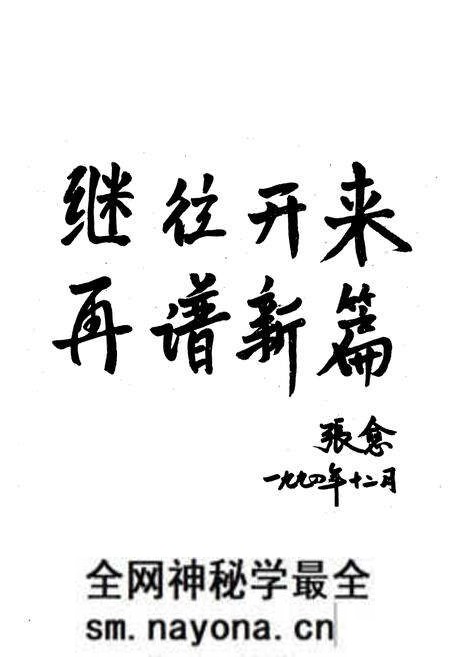 继往开来
再谱新篇
張愈
一九九四年十二月
全网神秘学最全
sm.nayona.cn